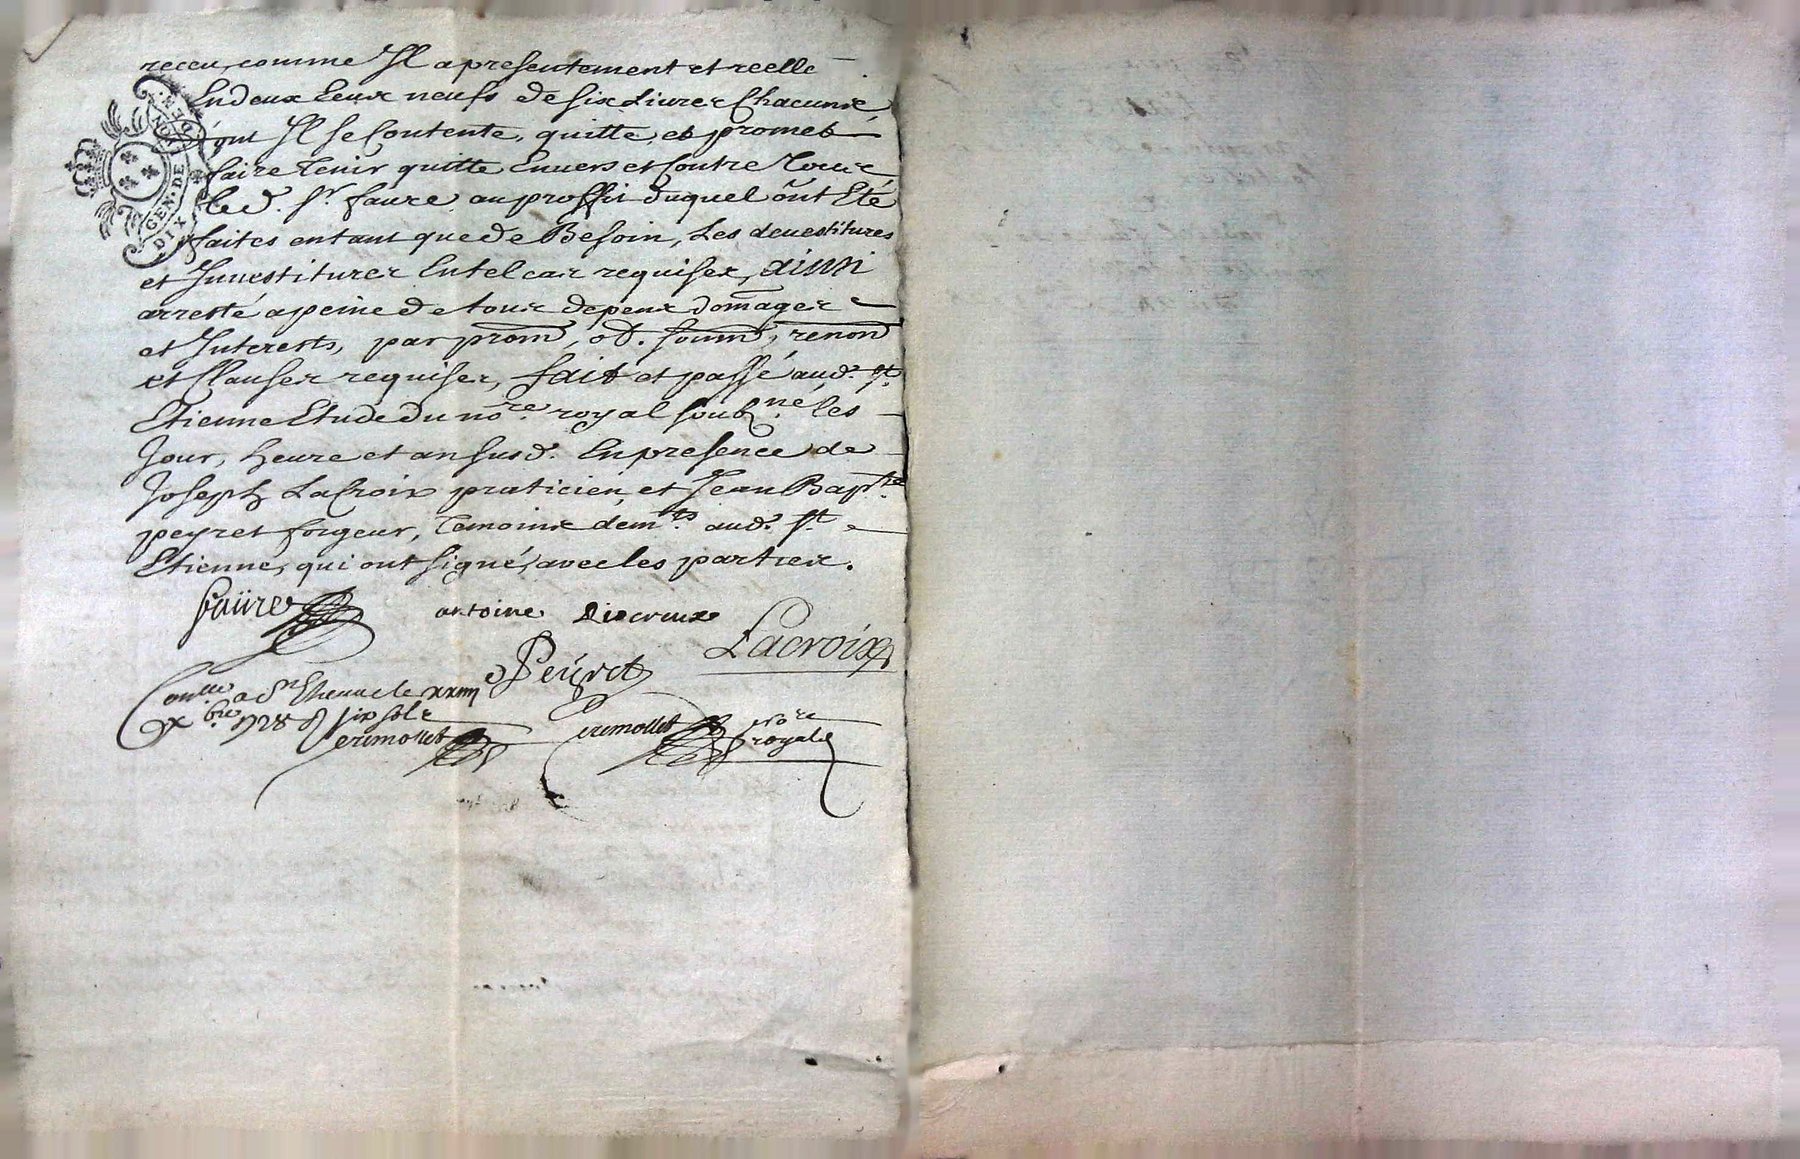 receu, comme Il a presentement et reelle
En deux Ecux neufs de six Livres Chacune
dont Il se Contente, quitte, et promet
faire Tenir quitte Envers et Contre Tous
led. Sr. faure au proffit duquel ont Eté
faites entant que de Besoin, Les devestitures
et Investitures En tel cas requises, ainsi
arresté a peine de tous depens domages
et Interests, par prom, ob. soum, renon
et Clauses requises, fait et passé aud. St.
Etienne Etude du nore. royal soubné. les
Jour, heure et an susd. En presence de
Joseph LaCroix praticien, et Jean Bapte.
peyret forgeur, Temoins demts. aud. St.
Etienne, qui ont signé, avec les parties.
GEN. DE
DIX
faüre antoine Lacroix
Peÿret
a St Etienne le xxiiij
xbre 1728 six sols
erimollet
erimollet nore
royal